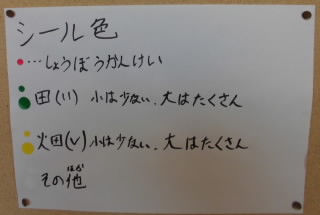 シール色
…しょうぼうかんけい
田(11) 小は少ない、大はたくさん
畑(V) 小は少ない、大はたくさん
その他
ほか